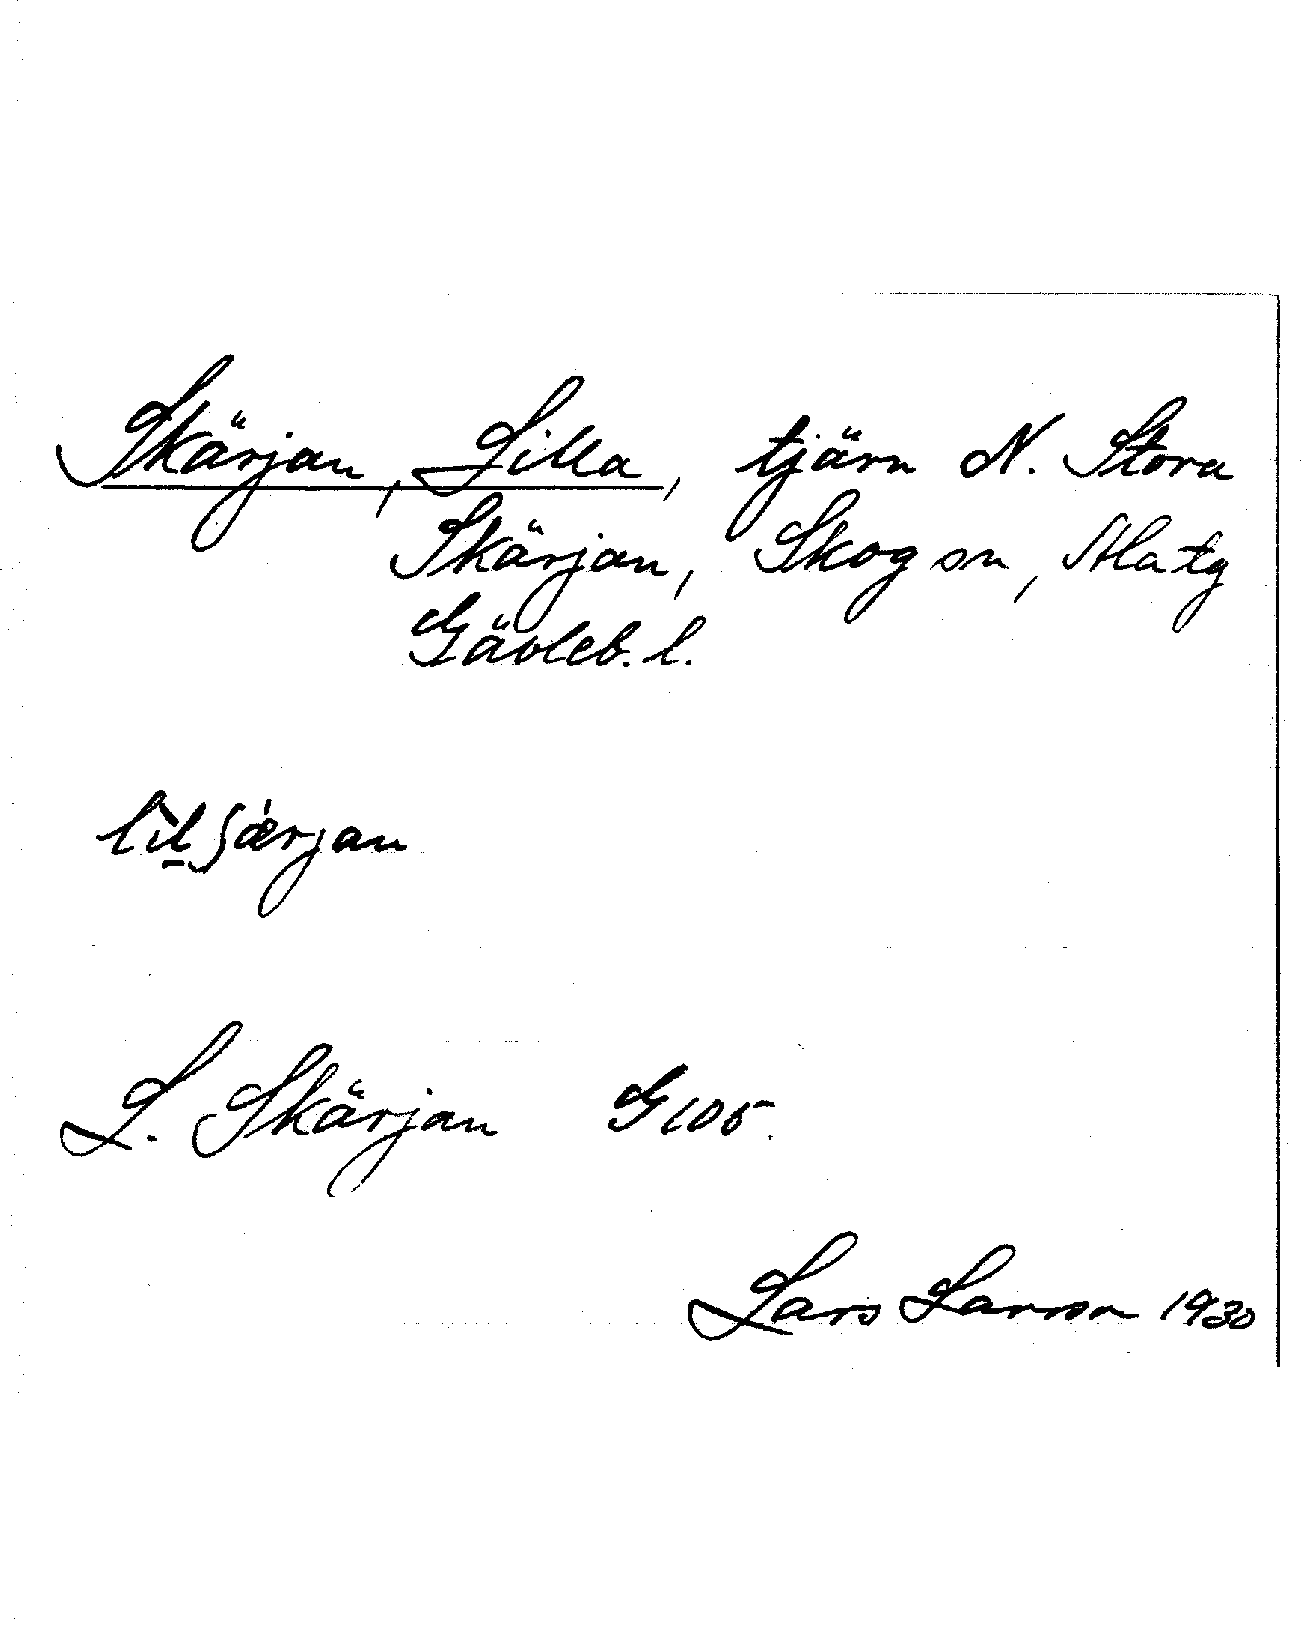 Skärjan, Lilla, tjärn N. Stora
Skärjan, Skog sn, Ala tg
Gävleb. l.
lilʃærjan
L. Skärjan G105.
Lars Larson 1930